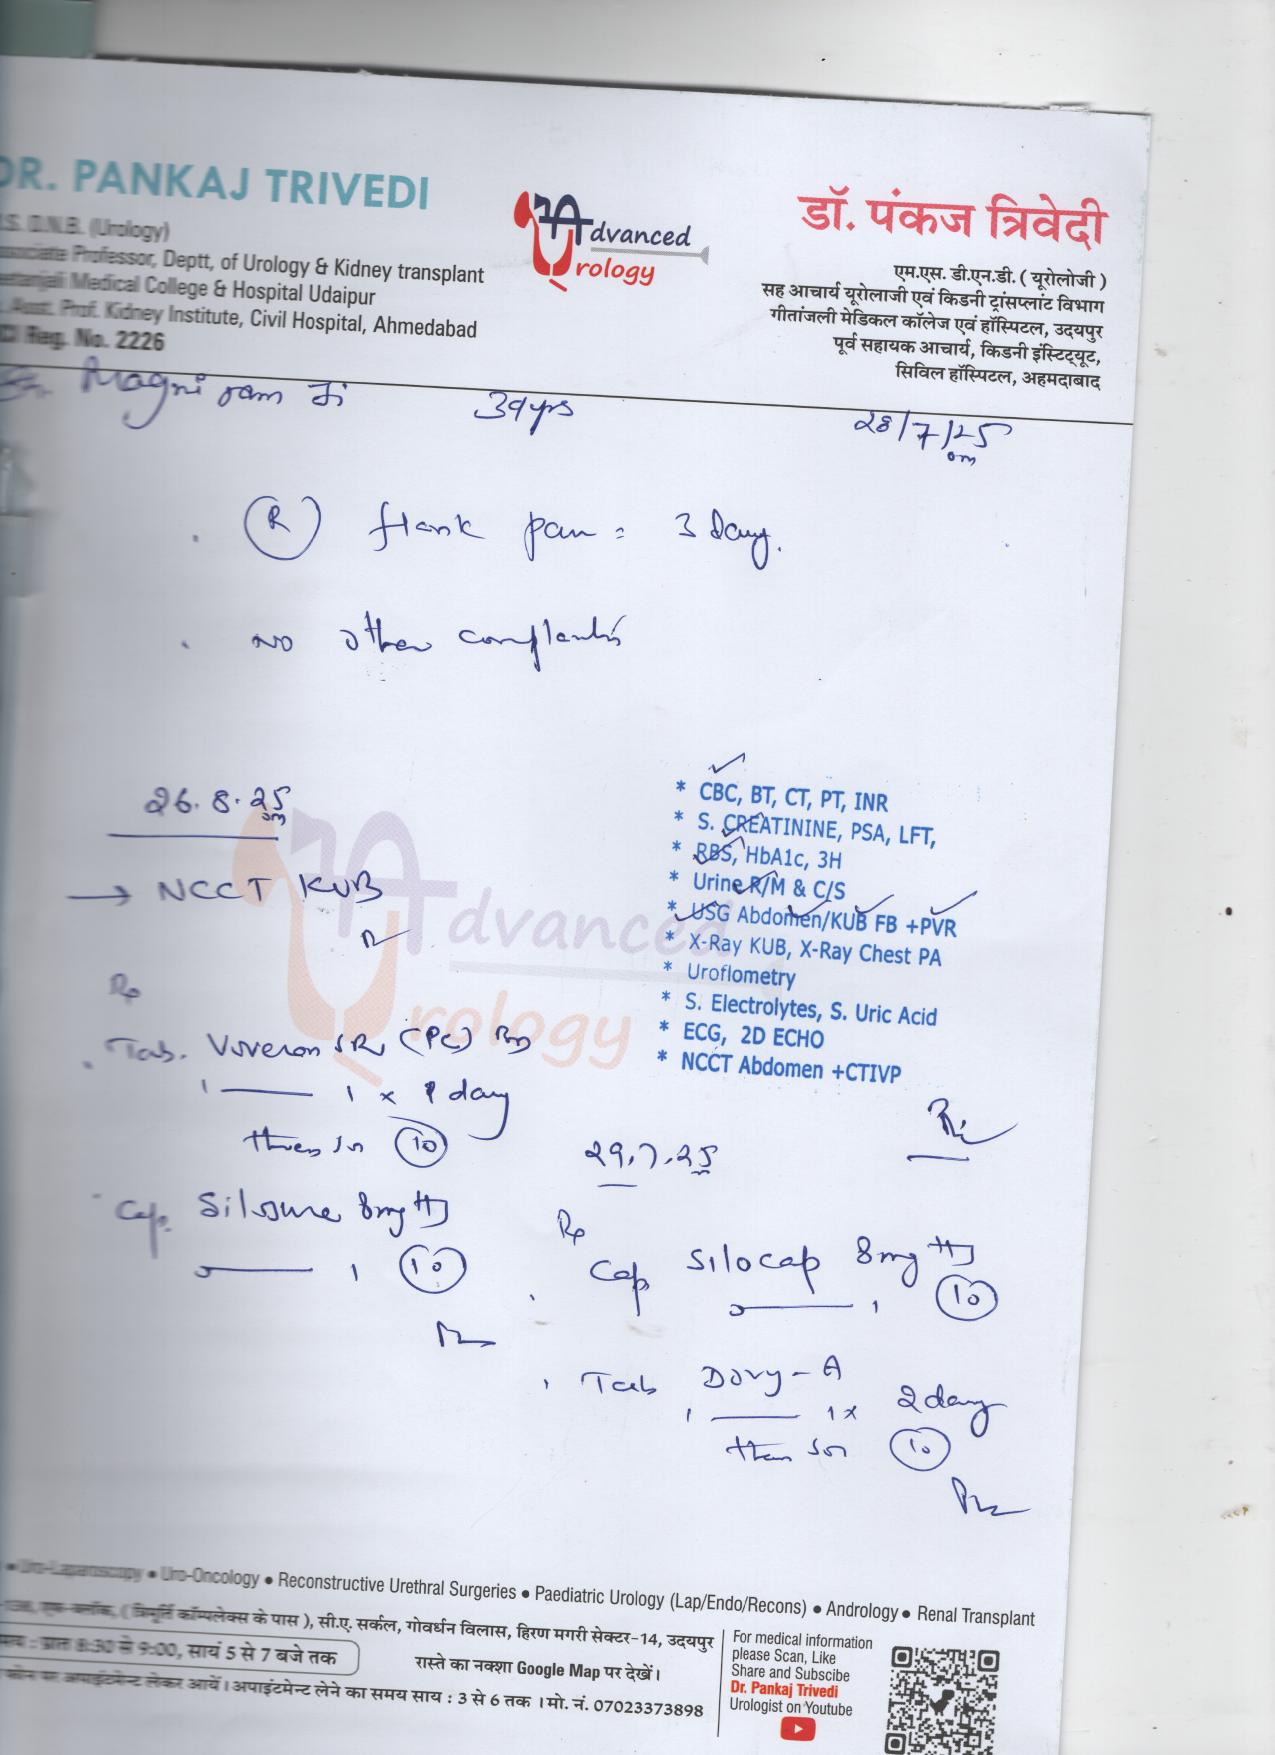 DR. PANKAJ TRIVEDI
.S. D.N.B. (Urology)
Associate Professor, Deptt, of Urology & Kidney transplant
Geetanjali Medical College & Hospital Udaipur
Asst. Prof. Kidney Institute, Civil Hospital, Ahmedabad
Reg. No. 2226
Advanced
Urology
डॉ. पंकज त्रिवेदी
एम.एस. डी.एन.डी. ( यूरोलोजी )
सह आचार्य यूरोलाजी एवं किडनी ट्रांसप्लांट विभाग
गीतांजली मेडिकल कॉलेज एवं हॉस्पिटल, उदयपुर
पूर्व सहायक आचार्य, किडनी इंस्टिट्यूट,
सिविल हॉस्पिटल, अहमदाबाद
Magni ram Ji 39yrs 28/7/25
(R) flank pain = 3 day.
NO other complaints
26.8.25
→ NCCT KUB
* CBC, BT, CT, PT, INR
* S. CREATININE, PSA, LFT,
* RBS, HbA1c, 3H
* Urine R/M & C/S
* USG Abdomen/KUB FB +PVR
* X-Ray KUB, X-Ray Chest PA
* Uroflometry
* S. Electrolytes, S. Uric Acid
* ECG, 2D ECHO
* NCCT Abdomen +CTIVP
Advanced
Urology
Rp
Tab. Voveron SR (PC)
1 — 1 x day
then sos (10)
Cap. 8mg HS
0 — 1 (10)
29.7.25
Rp
Cap Silocap 8mg HS
0 — 1 (10)
Tab
1 — 1 x 2 day
then sos (10)
• Uro-Laparoscopy • Uro-Oncology • Reconstructive Urethral Surgeries • Paediatric Urology (Lap/Endo/Recons) • Andrology • Renal Transplant
( त्रिमूर्ति कॉम्पलेक्स के पास ), सी.ए. सर्कल, गोवर्धन विलास, हिरण मगरी सेक्टर-14, उदयपुर
समय : प्रात 8:30 से 9:00, सायं 5 से 7 बजे तक
रास्ते का नक्शा Google Map पर देखें।
फोन पर अपाइंटमेन्ट लेकर आयें। अपाइंटमेन्ट लेने का समय साय : 3 से 6 तक । मो. नं. 07023373898
For medical information
please Scan, Like
Share and Subscibe
Dr. Pankaj Trivedi
Urologist on Youtube